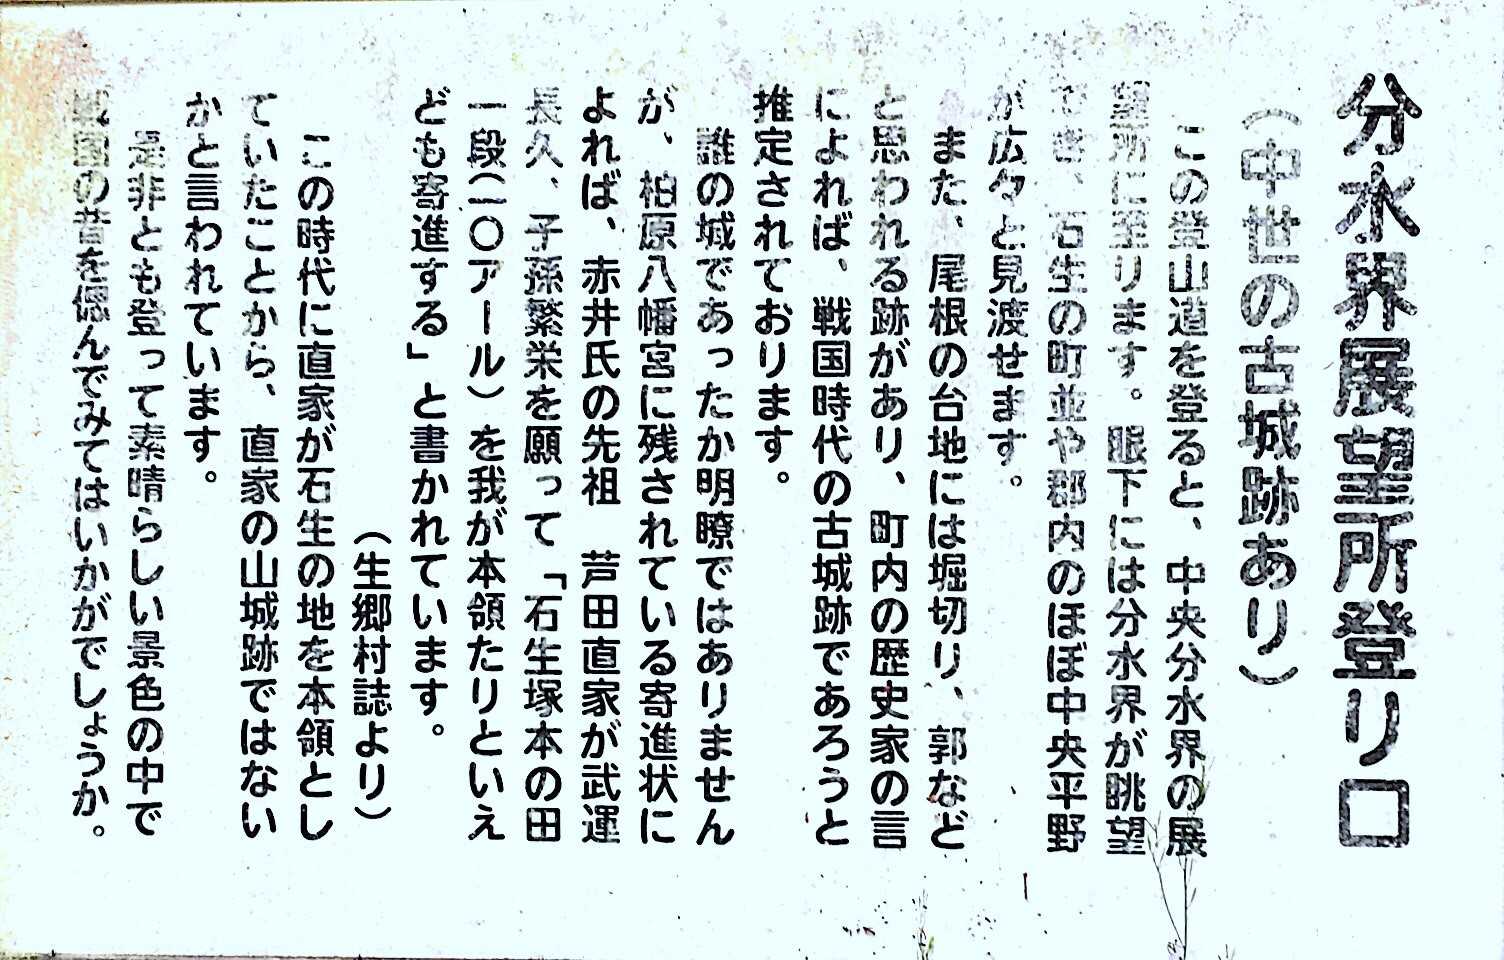 分水界展望所登り口
（中世の古城跡あり）
この登山道を登ると、中央分水界の展
望所に至ります。眼下には分水界が眺望
でき、石生の町並や郡内のほぼ中央平野
が広々と見渡せます。
また、尾根の台地には堀切り、郭など
と思われる跡があり、町内の歴史家の言
によれば、戦国時代の古城跡であろうと
推定されております。
誰の城であったか明瞭ではありません
が、柏原八幡宮に残されている寄進状に
よれば、赤井氏の先祖　芦田直家が武運
長久、子孫繁栄を願って「石生塚本の田
一段（一〇アール）を我が本領たりといえ
ども寄進する」と書かれています。
（生郷村誌より）
この時代に直家が石生の地を本領とし
ていたことから、直家の山城跡ではない
かと言われています。
是非とも登って素晴らしい景色の中で
戦国の昔を偲んでみてはいかがでしょうか。